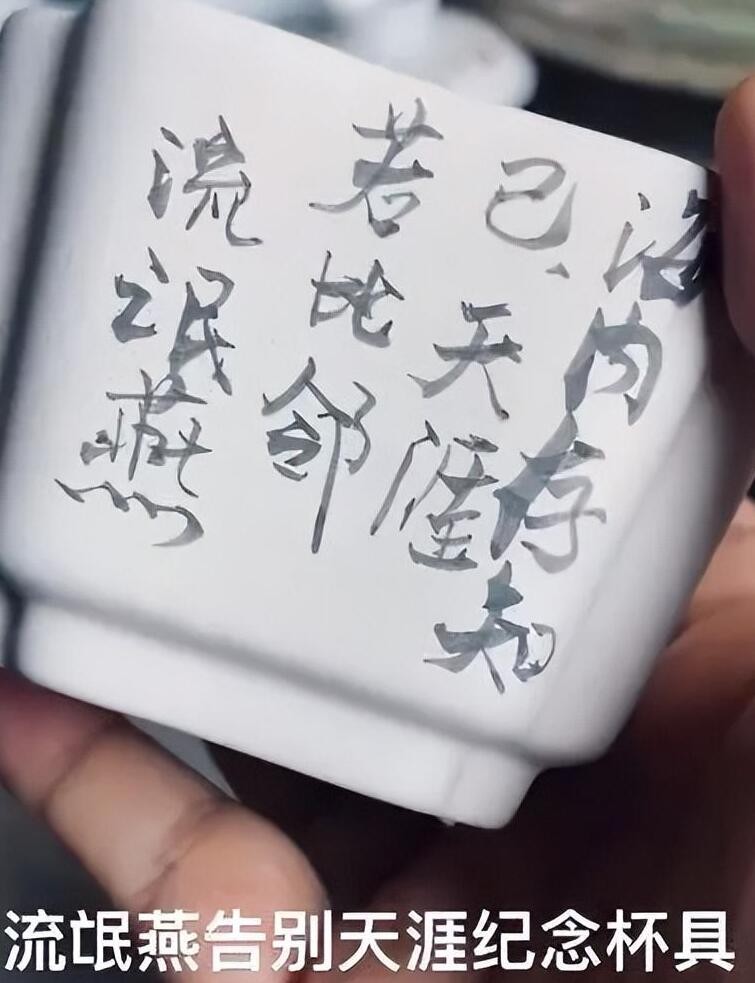 海内存知
己天涯
若比邻
流氓燕
流氓燕告别天涯纪念杯具